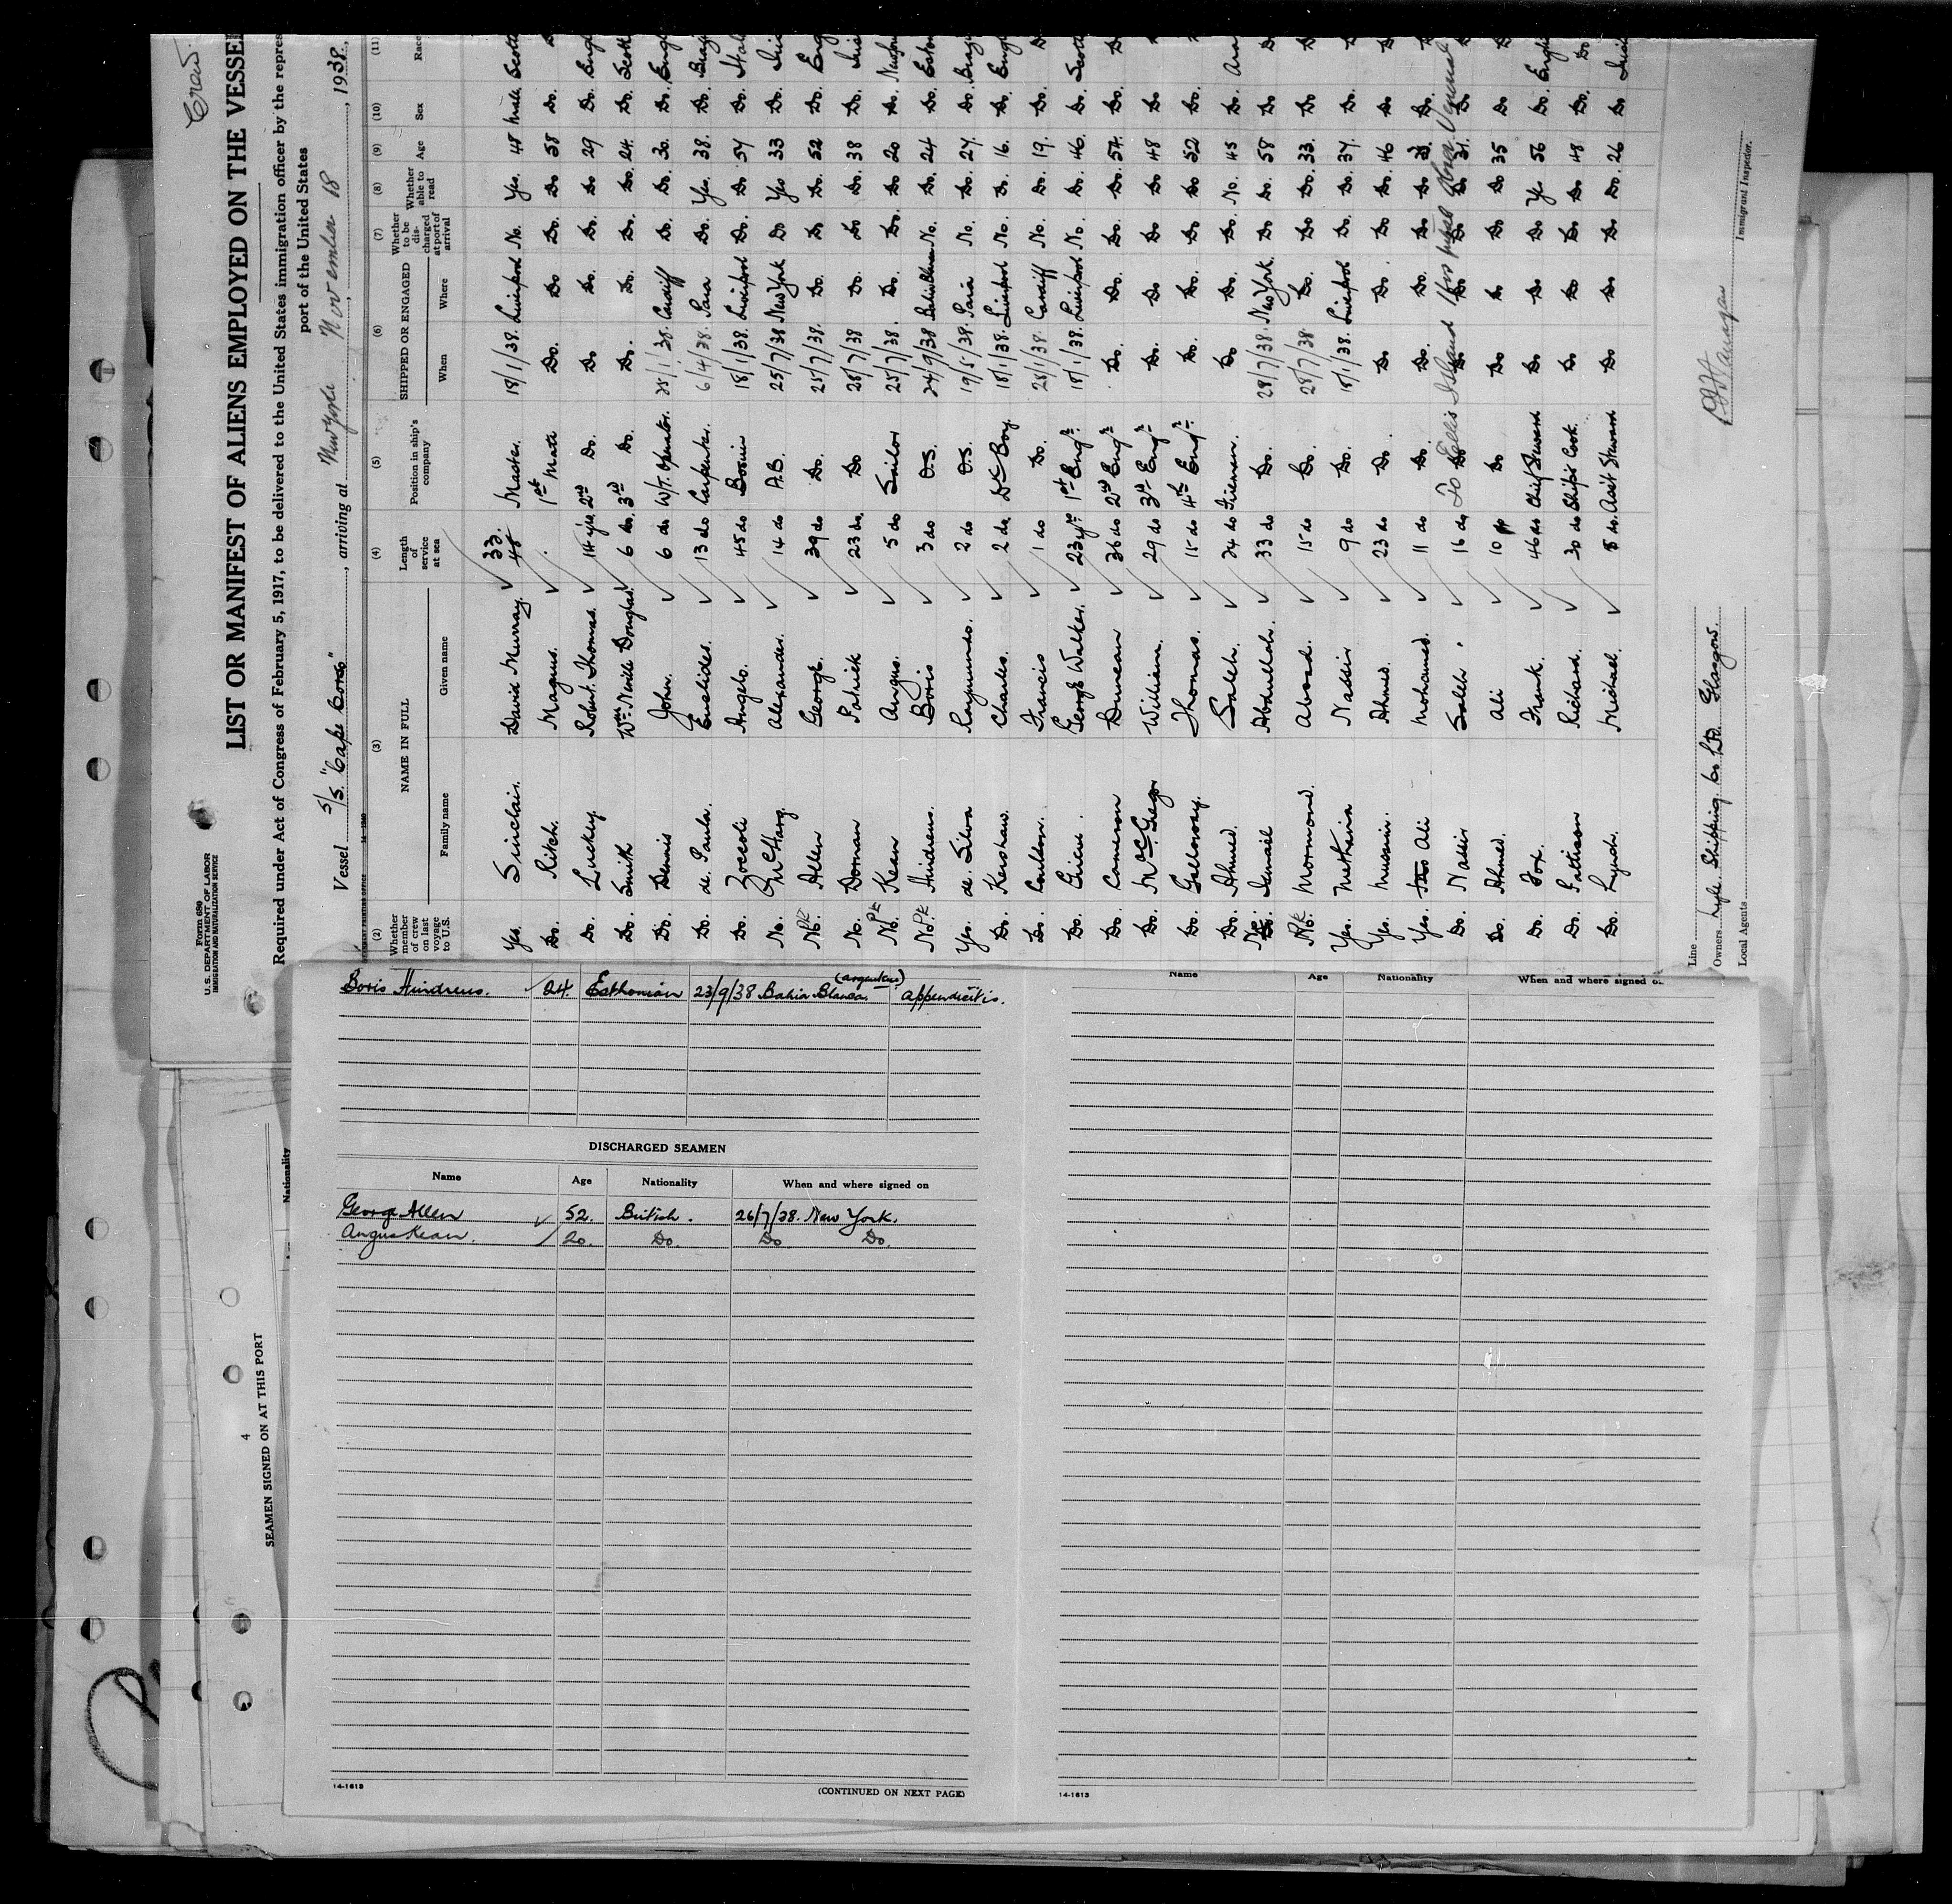 Crew
Form 680
U.S. DEPARTMENT OF LABOR
IMMIGRATION AND NATURALIZATION SERVICE
LIST OR MANIFEST OF ALIENS EMPLOYED ON THE VESSEL
Required under Act of Congress of February 5, 1917, to be delivered to the United States immigration officer by the repres
port of the United States
Vessel S/S. "Cape Corso", arriving at New York, November 18, 1938,
(2) (3) (4) (5) (6) (7) (8) (9) (10) (11)
Whether member of crew on last voyage to U.S. NAME IN FULL Length of service at sea Position in ship's company SHIPPED OR ENGAGED Whether to be discharged at port of arrival Whether able to read Age Sex Race
Family name Given name When Where
Yes. Sinclair. David Murray. 33. 48 Master. 18/1/38. Liverpool No. Yes. 48 Male Scott
Do. Ritch. Magnus. 1st Mate Do. Do Do. Do 58 Do. D
Do. Luckey. Robert Thomas. 14 yrs. 2nd Do. Do Do. Do. Do 29 Do. Engl
Do. Smith Wm. Neville Douglas. 6 do. 3rd Do. Do. Do. Do. Do. 24. Do. Scott
Do. Dennis John. 6 do W/T. Operator. 28/1/38. Cardiff Do. Do. 30. Do. Engl
Do. de Paula. Euclides. 13 do Carpenter. 6/4/38. Para Do. Yes. 38. Do. Braz
Do. Zoccoli Angelo. 45 do Bosun 18/1/38. Liverpool Do. Do 57 Do. Ital
No. McHarg. Alexander. 14 do A.B. 25/7/38 New York Do Yes 33 Do. Iris
No. Allen George. 39 do Do. 25/7/38. Do. Do Do. 52 Do. Eng
No. Doonan Patrick 23 do. Do 28/7/38 Do. Do Do. 38 Do. Iris
No. Kean Angus. 5 do Sailor 25/7/38. Do. Do. Do 20 Do. Newfou
No. Hindreus. Boris 3 do O.S. 24/9/38 Bahia Blanca No. Do. 24 Do. Eston
Yes. de Silva Raymundo. 2 do O.S. 19/5/38. Para No. Do. 27. Do. Braz
Do. Kershaw. Charles. 2 do. Dk Boy. 18/1/38. Liverpool No. Do. 16. Do. Engl
Do. Francis 1 do Do. 28/1/38. Cardiff No. Do. 19. Do. D
Do. George Walker. 23 yrs 1st Engr. 18/1/38. Liverpool No. Do. 46. Do. Scott
Do. Cameron Duncan 36 do 2nd Engr. Do. Do. Do. Do. 54. Do. D
Do. McGregor William. 29 do 3rd Engr. Do. Do Do Do 48 Do
Do. Galloway. Thomas. 15 do 4th Engr. Do. Do. Do Do 52 Do.
Do. Ahmed. Saleh. 24 do Fireman. Do Do. Do. No. 45 Do. Ara
Do. Ismail Abdullah. 33 do Do. 28/7/38. New York. Do Do. 58 Do D
No. Abood. 15 do Do. 28/7/38 Do. Do Do. 33. Do
Yes. Nassir 9 do Do. 18/1/38. Liverpool Do. Do. 37. Do.
Yes. Ahmed. 23 do Do Do Do. Do Do. 46 Do
Yes. Ali Mohamed. 11 do Do. Do. Do. Do Do. Do.
Do. Nassir Saleh. 16 do. Do Do Do Do Do 31. Do
To Ellis Island Hospital
Do. Ahmed. Ali 10 Do Do Do Do Do 35 Do
Do. Fox. Frank. 46 do Chief Steward Do Do Do Yes 56 Do. Engli
Do. Pattison Richard. 30 do Ship's Cook. Do Do Do Do 48 Do. Do
Do. Lynch. Michael. 8 do. Asst Steward Do Do Do Do. 26 Do Irish
Line
Owners Lyle Shipping Co Ltd Glasgow.
Local Agents
Immigrant Inspector.
Boris Hindreus. 24. Esthonian 23/9/38 Bahia Blanca. (Argentine) Appendicitis.
DISCHARGED SEAMEN
Name Age Nationality When and where signed on
George Allen 52. British. 26/7/38. New York.
Angus Kean. 20. Do. Do Do.
14-1613 (CONTINUED ON NEXT PAGE)
Name Age Nationality When and where signed on
14-1613
4
SEAMEN SIGNED ON AT THIS PORT
Nationality